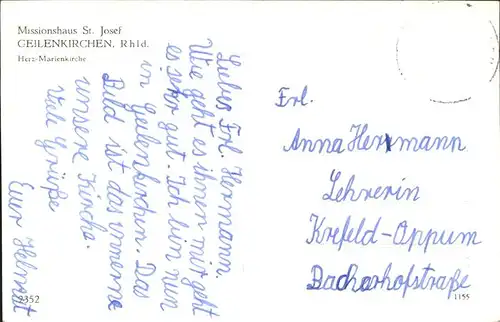 Missionshaus St. Josef
GEILENKIRCHEN, Rhld.
Herz-Marienkirche
Liebes Frl. Hermann.
Wie geht es ihnen mir geht
es sehr gut. Ich bin nun
in Geilenkirchen. Das
Bild ist das innerne
unsere Kirche.
Viele Grüße
Euer Helmut
Frl.
Anna Herrmann
Lehrerin
Krefeld-Oppum
Bacherhofstraße
2352
1155